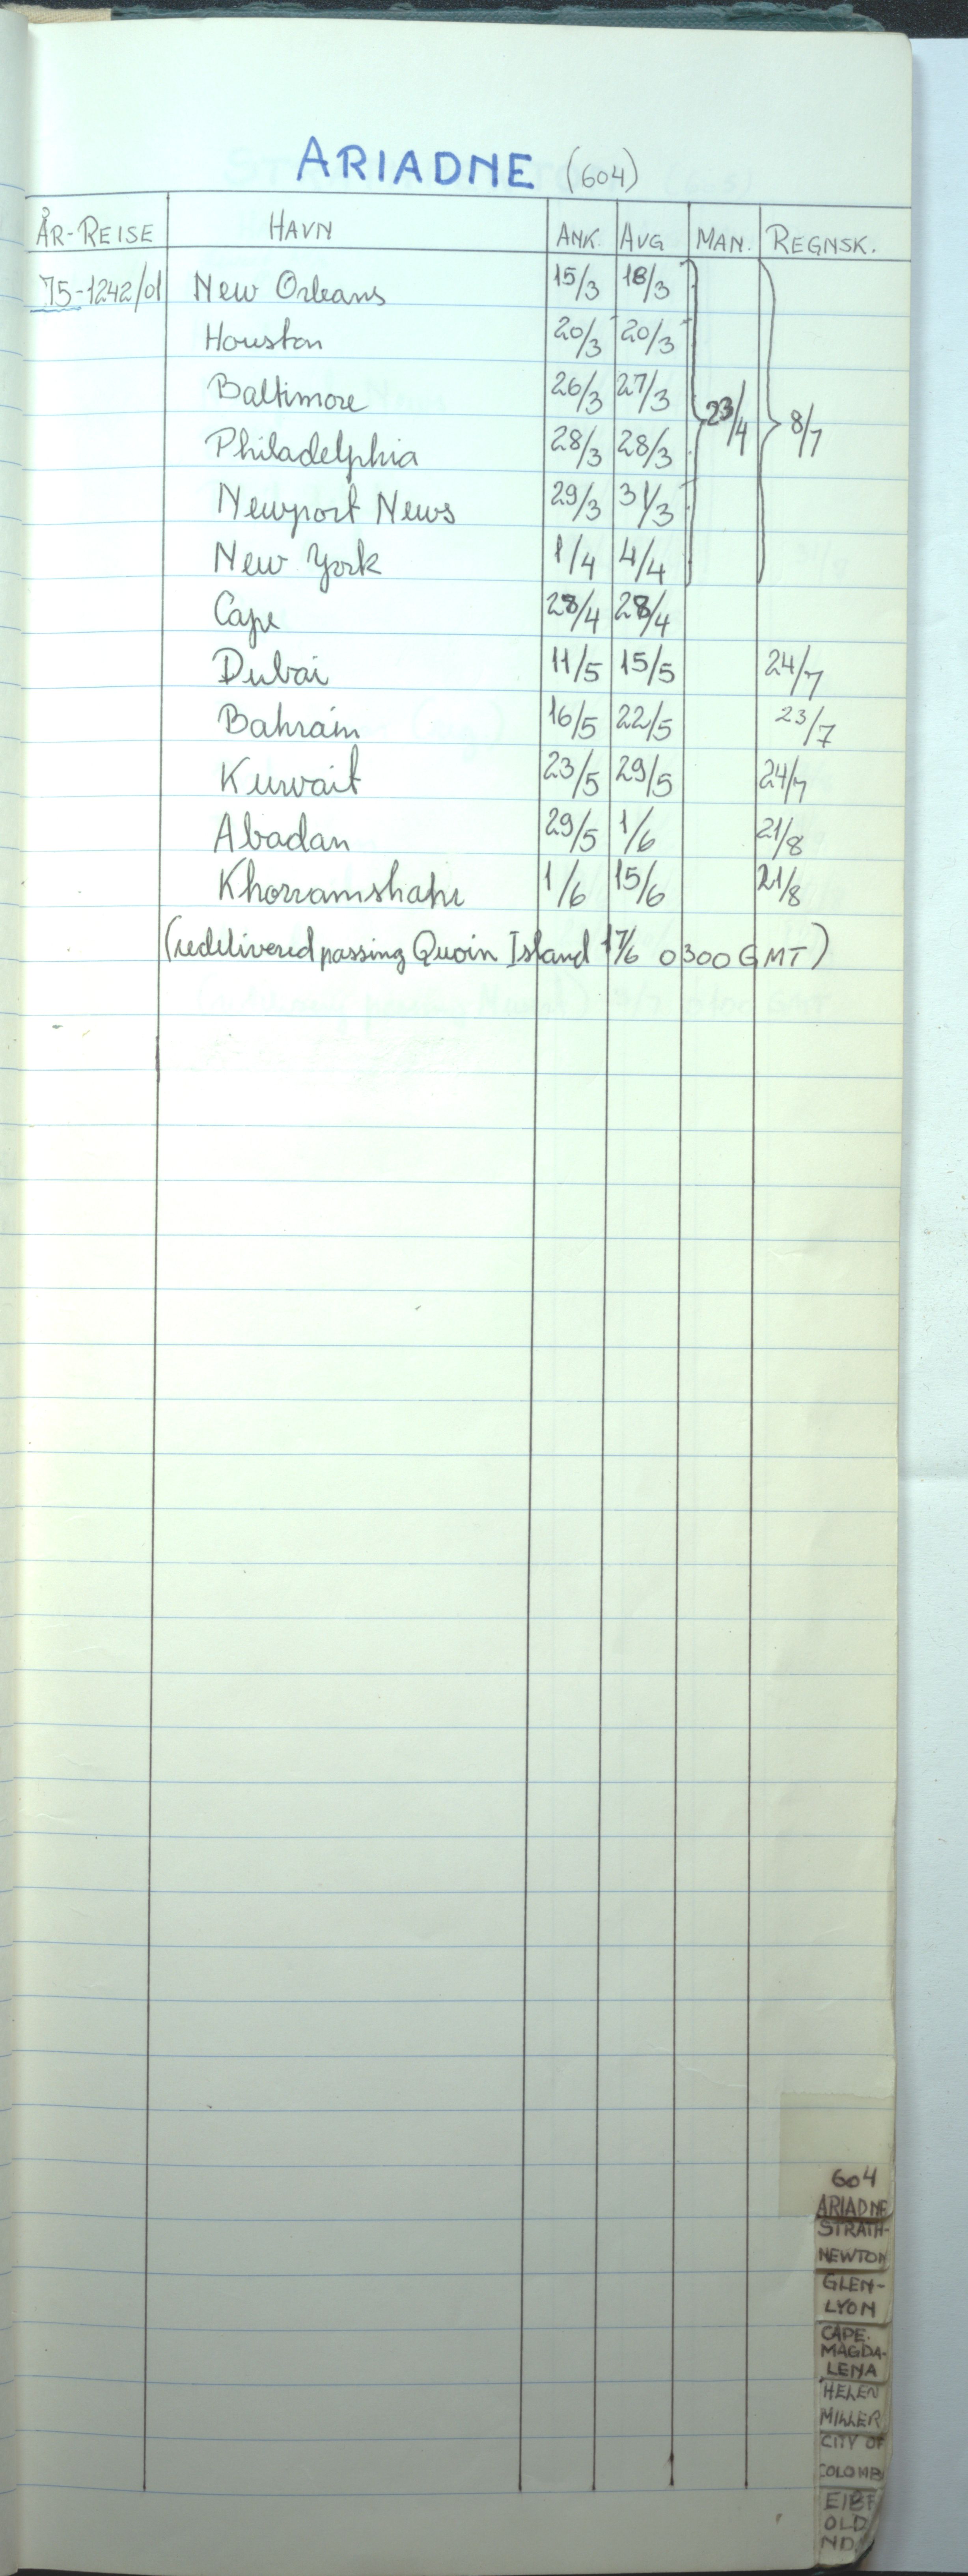 ARIADNE (604)
ÅR-REISE HAVN ANK. AVG MAN. REGNSK.
75-1242/01 New Orleans 15/3 18/3
Houston 20/3 20/3
Baltimore 26/3 27/3 23/4 8/7
Philadelphia 28/3 28/3
Newport News 29/3 31/3
New York 1/4 4/4
Cape 28/4 28/4
Dubai 11/5 15/5 24/7
Bahrain 16/5 22/5 23/7
Kuwait 23/5 29/5 24/7
Abadan 29/5 1/6 21/8
Khorramshahr 1/6 15/6 21/8
(redelivered passing Quoin Island 17/6 0300 GMT)
604
ARIADNE
STRATH-
NEWTON
GLEN-
LYON
CAPE.
MAGDA-
LENA
HELEN
MILLER
CITY OF
COLOMB
EIBF
OLD
ND